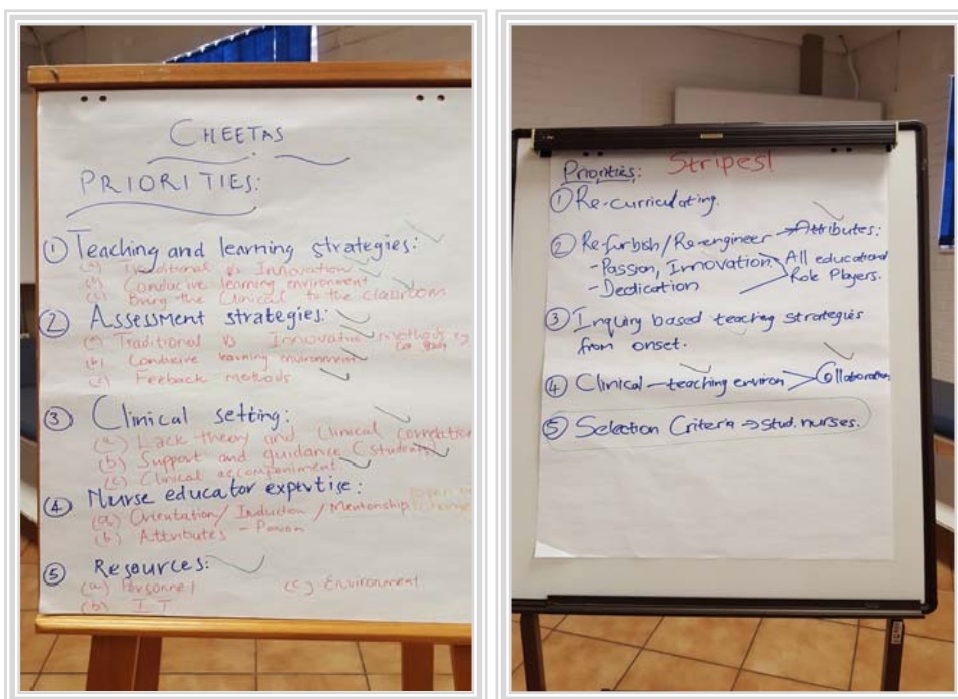 CHEETAS
PRIORITIES:
① Teaching and learning strategies:
(a) Traditional vs Innovation
(b) Conducive learning environment
(c) Bring the Clinical to the classroom
② Assessment strategies:
(a) Traditional vs Innovative methods eg
(b) Conducive learning environment
(c) Feeback methods
③ Clinical setting:
(a) Lack theory and Clinical correlation
(b) Support and guidance (students)
(c) Clinical accompaniment
④ Nurse educator expertise:
(a) Orientation/Induction/Mentorship
(b) Attributes - Passion
⑤ Resources:
(a) Personnel (c) Environment
(b) IT
Priorities: Stripes!
① Re-curriculating.
② Refurbish/Re-engineer → Attributes:
- Passion, Innovation, All educational
- Dedication Role Players.
③ Inquiry based teaching strategies
from onset.
④ Clinical - teaching environ > Collaboration
⑤ Selection Criteria → stud. nurses.